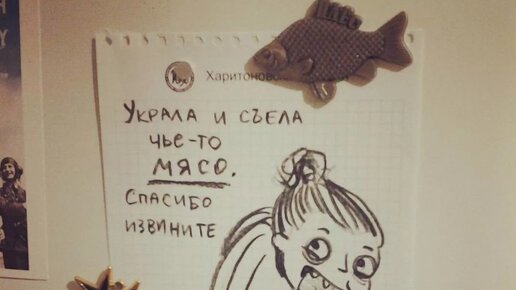 Харитонов
УКРАЛА И СЪЕЛА
ЧЬЕ-ТО
МЯСО.
СПАСИБО
ИЗВИНИТЕ